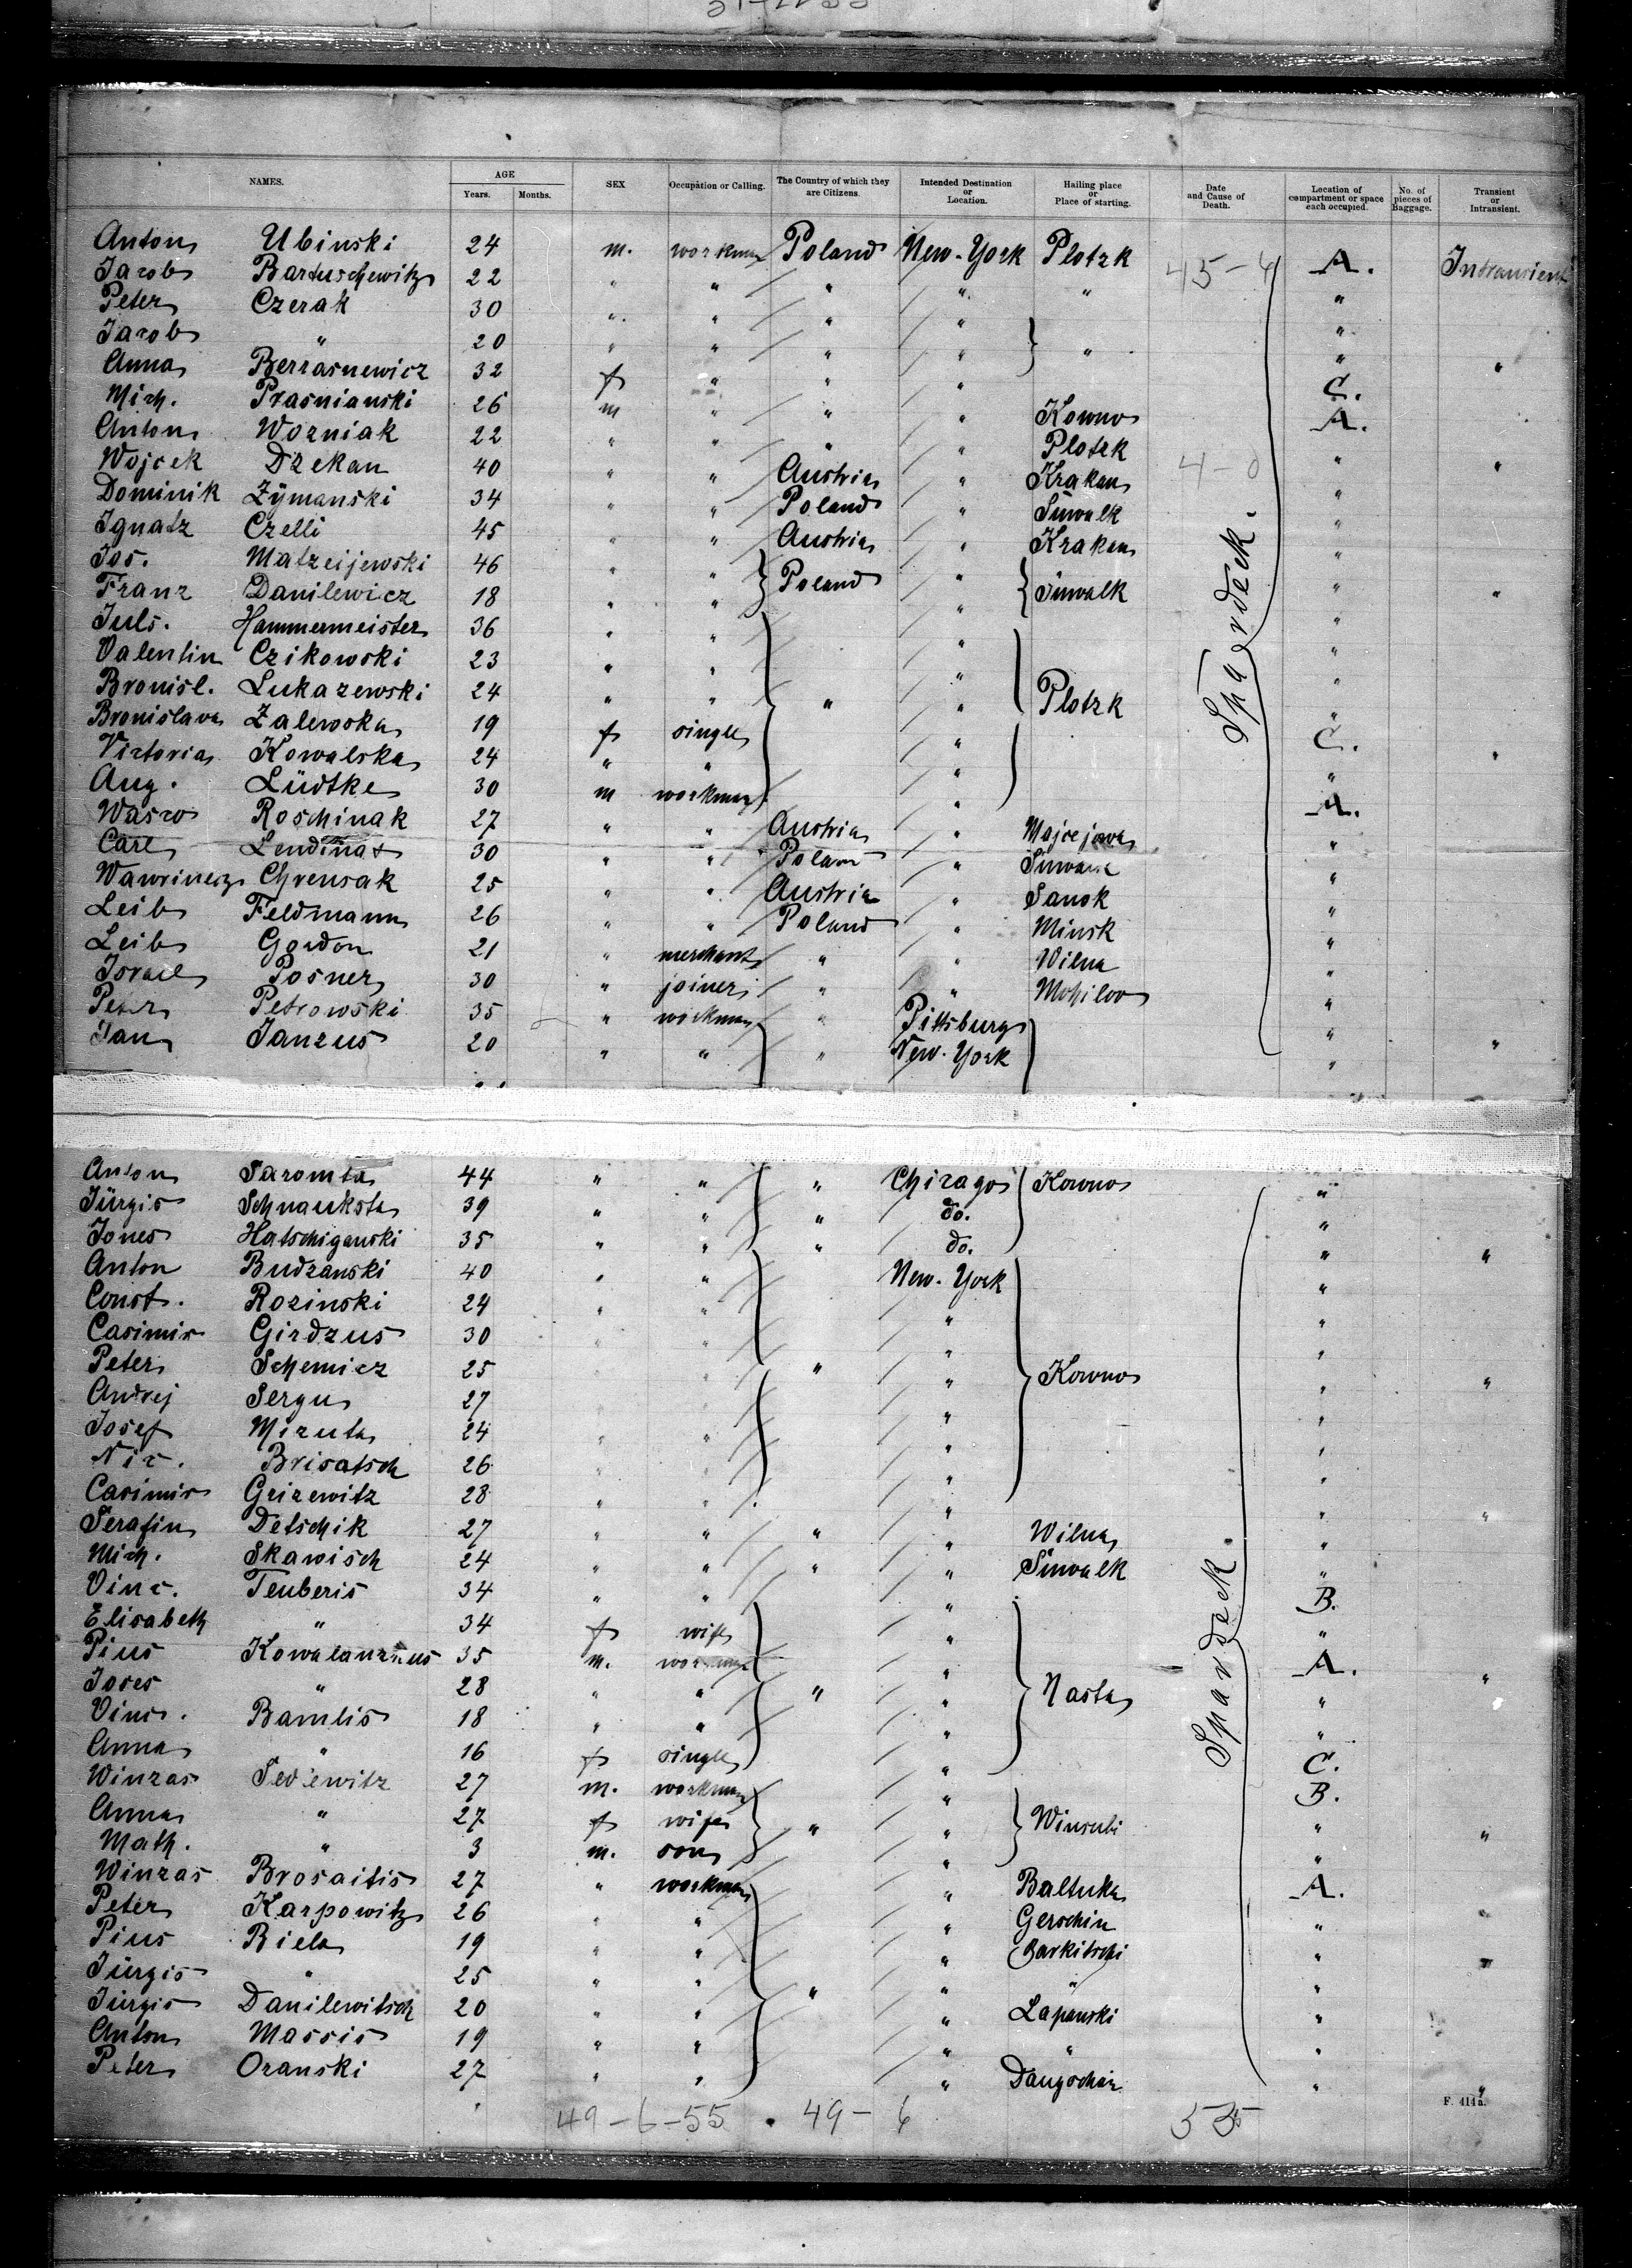 NAMES. AGE Years. Months. SEX Occupation or Calling. The Country of which they are Citizens. Intended Destination or Location. Hailing place or Place of starting. Date and Cause of Death. Location of compartment or space each occupied. No. of pieces of Baggage. Transient or Intransient.
Anton Ubinski 24 m. workman Poland New-York Plotzk 45-4 A. Intransient
Jacob Bartuschewitz 22 " " " " " "
Peter Czerak 30 " " " " "
Jacob " 20 " " " " " "
Anna Berrasnewicz 32 f " " " C. "
Mich. Prasnianski 26 m " " " Kowno A.
Anton Wozniak 22 " " " " Plotzk "
Wojcek Dzekan 40 " " Austria " Krakau 4- " "
Dominik Zymanski 34 " " Poland " Suwalk "
Ignatz Czelli 45 " " Austria " Krakau "
Jos. Matzeijewski 46 " " Poland " Suwalk "
Franz Danilewicz 18 " " " " "
Juls. Hammermeister 36 " " " "
Valentin Czikowski 23 " " " "
Bronisl. Lukazewski 24 " " " " Plotzk "
Bronislava Zalewska 19 f single " C. "
Victoria Kowalska 24 " " " "
Aug. Lüdtke 30 m workman " A.
Wasco Roschinak 27 " " Austria " "
Carl 30 " " Poland " "
Wawrinecz Chrensak 25 " " Austria " Sanok "
Leib Feldmann 26 " " Poland " Minsk "
Leib Gordon 21 " merchant " " Wilna "
Israel Posner 30 " joiner " " Mohilov "
Peter Petrowski 35 " workman " Pittsburg "
Jan Janzus 20 " " " New-York " "
Spardeck.
Anton Saromta 44 " " " Chicago Kowno "
Jürgis Schnauksta 39 " " " do. "
Jones Hatschiganski 35 " " " do. " "
Anton Budzanski 40 " " New-York "
Const. Rozinski 24 " " " "
Casimir Girdzus 30 " " " "
Peter Schemicz 25 " " " " Kowno " "
Andrej Sergu 27 " " " "
Josef Mizuta 24 " " " "
Nic. Brisatsch 26 " " " "
Casimir Grizewitz 28 " " " " "
Serafin Detschik 27 " " " " Wilna "
Mich. Skawisch 24 " " " " Suwalk "
Vinc. Teuberis 34 " " " B.
Elisabeth " 34 f wife " "
Pius 35 m. workman " A. "
Joses " 28 " " " " Nasta "
Vinc. Bamlis 18 " " " "
Anna " 16 f single " C.
Winzas 27 m. workman " B.
Anna " 27 f wife " " Winsubi " "
Math. " 3 m. son " "
Winzas Brosaitis 27 " workman " Baltuka A.
Peter Karpowitz 26 " " " Gerschin " "
Pius Biela 19 " " " Barkitschi " "
Jürgis " 25 " " " " " "
Jürgis Danilewitsch 20 " " " Lapanski "
Anton Massis 19 " " " " "
Peter Oranski 27 " " " " "
Spardeck.
49-6-55 . 49-6 55
F. 414a.